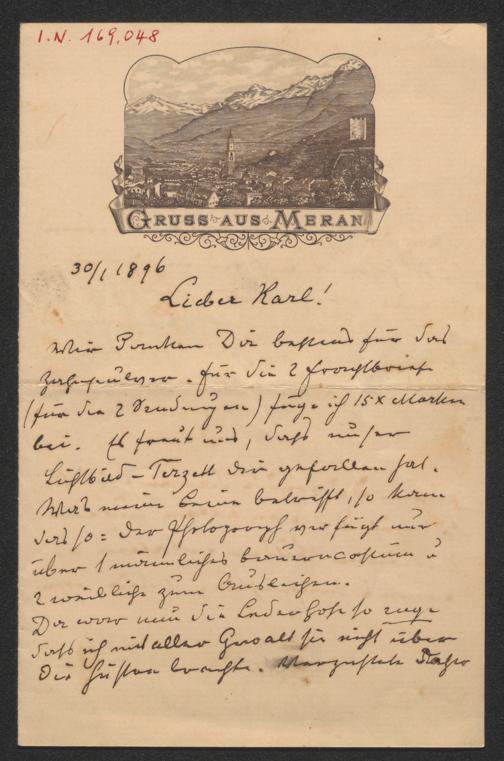 I.N. 169.048
GRUSS AUS MERAN
30/1 1896
Lieber Karl!
Wir danken Dir bestens für das
Zahnpulver. Für die 2 Frachtbriefe
(für die 2 Sendungen) füge ich 15 x Marken
bei. Es freut uns, daß unser
Lichtbild-Terzett dir gefallen hat.
Was meine Beine betrifft, so kam
das so: Der Photograph verfügt nur
über 1 männliches Bauerncostüm u
2 weibliche zum Ausleihen.
Da war nun die Lederhose so enge
daß ich mit aller Gewalt sie nicht über
die Hüften brachte.